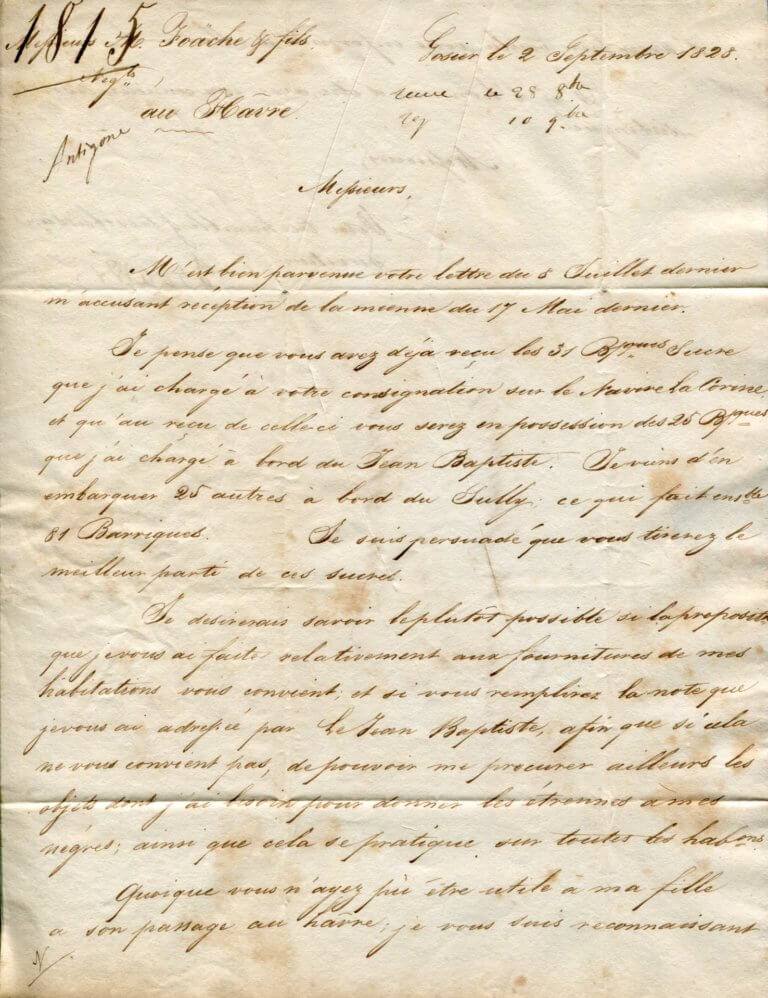 1815
Messieurs M. Foäche & fils. Gosier le 2 Septembre 1828.
Negts
au Hâvre. reçue le 28 8bre
Antigone rep 10 9.bre
Messieurs,
M'est bien parvenue votre lettre du 8 Juillet dernier
m'accusant réception de la mienne du 17 Mai dernier.
Je pense que vous avez déjà reçu les 31 Bques Sucre
que j'ai chargé à votre consignation sur le Navire La Corine,
et qu'au reçu de celle-ci vous serez en possession des 25 Bques
que j'ai chargé à bord du Jean Baptiste. Je viens d'en
embarquer 25 autres à bord du Sully; ce qui fait ensble
81 Barriques. Je suis persuadé que vous tirerez le
meilleur parti de ces sucres.
Je desirerais savoir le plutôt possible si la propositn
que je vous ai faite relativement aux fournitures de mes
habitations vous convient; et si vous remplirez la note que
je vous ai adressée par Le Jean Baptiste, afin que si cela
ne vous convient pas, de pouvoir me procurer ailleurs les
objets dont j'ai besoin pour donner les étrennes à mes
nègres; ainsi que cela se pratique sur toutes les habons
Quoique vous n'ayez pû être utile a ma fille
a son passage au hâvre; je vous suis reconnaissant
N